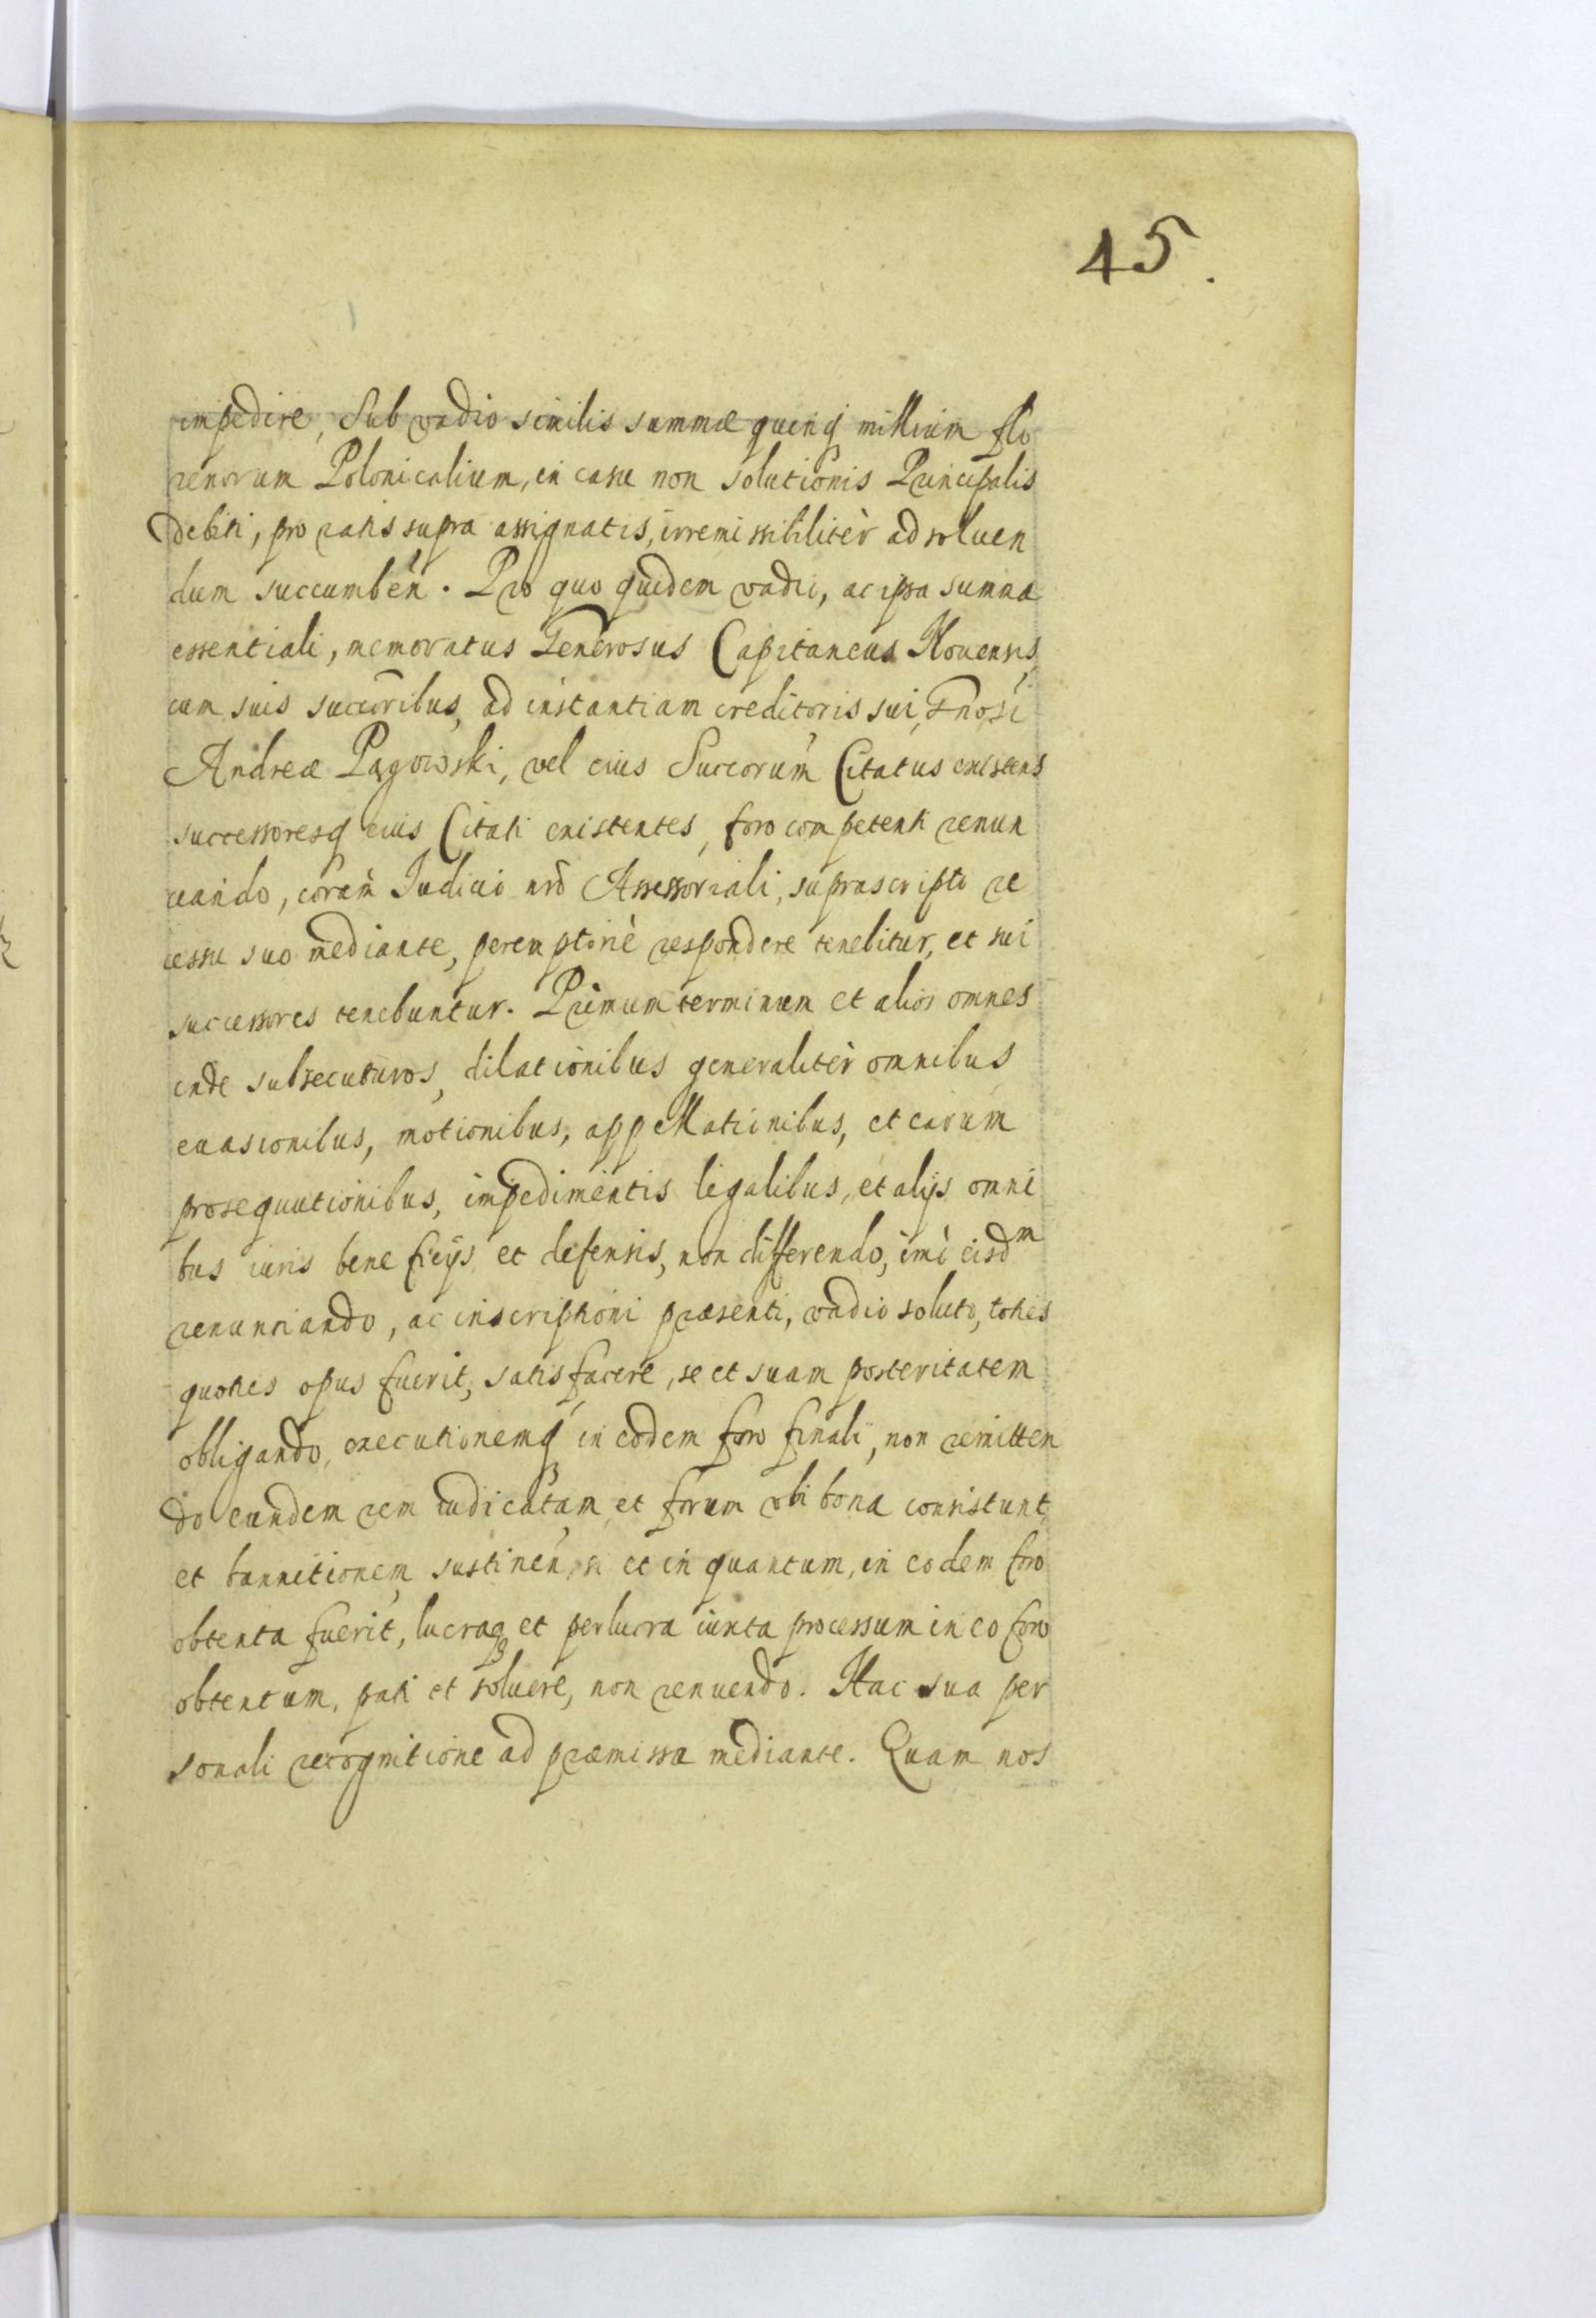 45.
impedire, Sub vadio similis summæ quinq millium flo
renorum Polonicalium, in casu non solutionis Principalis
debiti, pro ratis supra assignatis, irremissibilitèr ad soluen
dum succumbeñ. Pro quo quidem vadio, ac ipsa summa
essentiali, memoratus Generosus Capitaneus Kouensis,
cum suis succoribus, ad instantiam creditoris sui, Gnosi
Andreæ Pągowski, vel eius Succorum Citatus existens
successoresq eius Citati existentes, foro competenti renun
ciando, coram Iudicio nrõ Assessoriali, suprascripto re
cessu suo mediante, peremptoriè respondere tenebitur, et sui
successores tenebuntur. Primum terminum et alios omnes
inde subsecuturos, dilationibus generalitèr omnibus
euasionibus, motionibus, appellationibus, et earum
prosequutionibus, impedimentis legalibus, et alijs omni
bus iuris beneficijs et defensis, non differendo, imò eisdm
renunciando, ac inscriptioni præsenti, vadio soluto, toties
quoties opus fuerit, satisfacere, se et suam posteritatem
obligando, executionemq in eodem foro finali, non remitten
do eundem rem iudicatam et forum vbi bona consistunt,
et bannitionem sustineñ, si et in quantum, in eodem foro
obtenta fuerit, lucraq et perlucra iuxta processum in eo foro
obtentum, pati et soluere, non renuendo. Hac sua per
sonali recognitione ad præmissa mediante. Quam nos